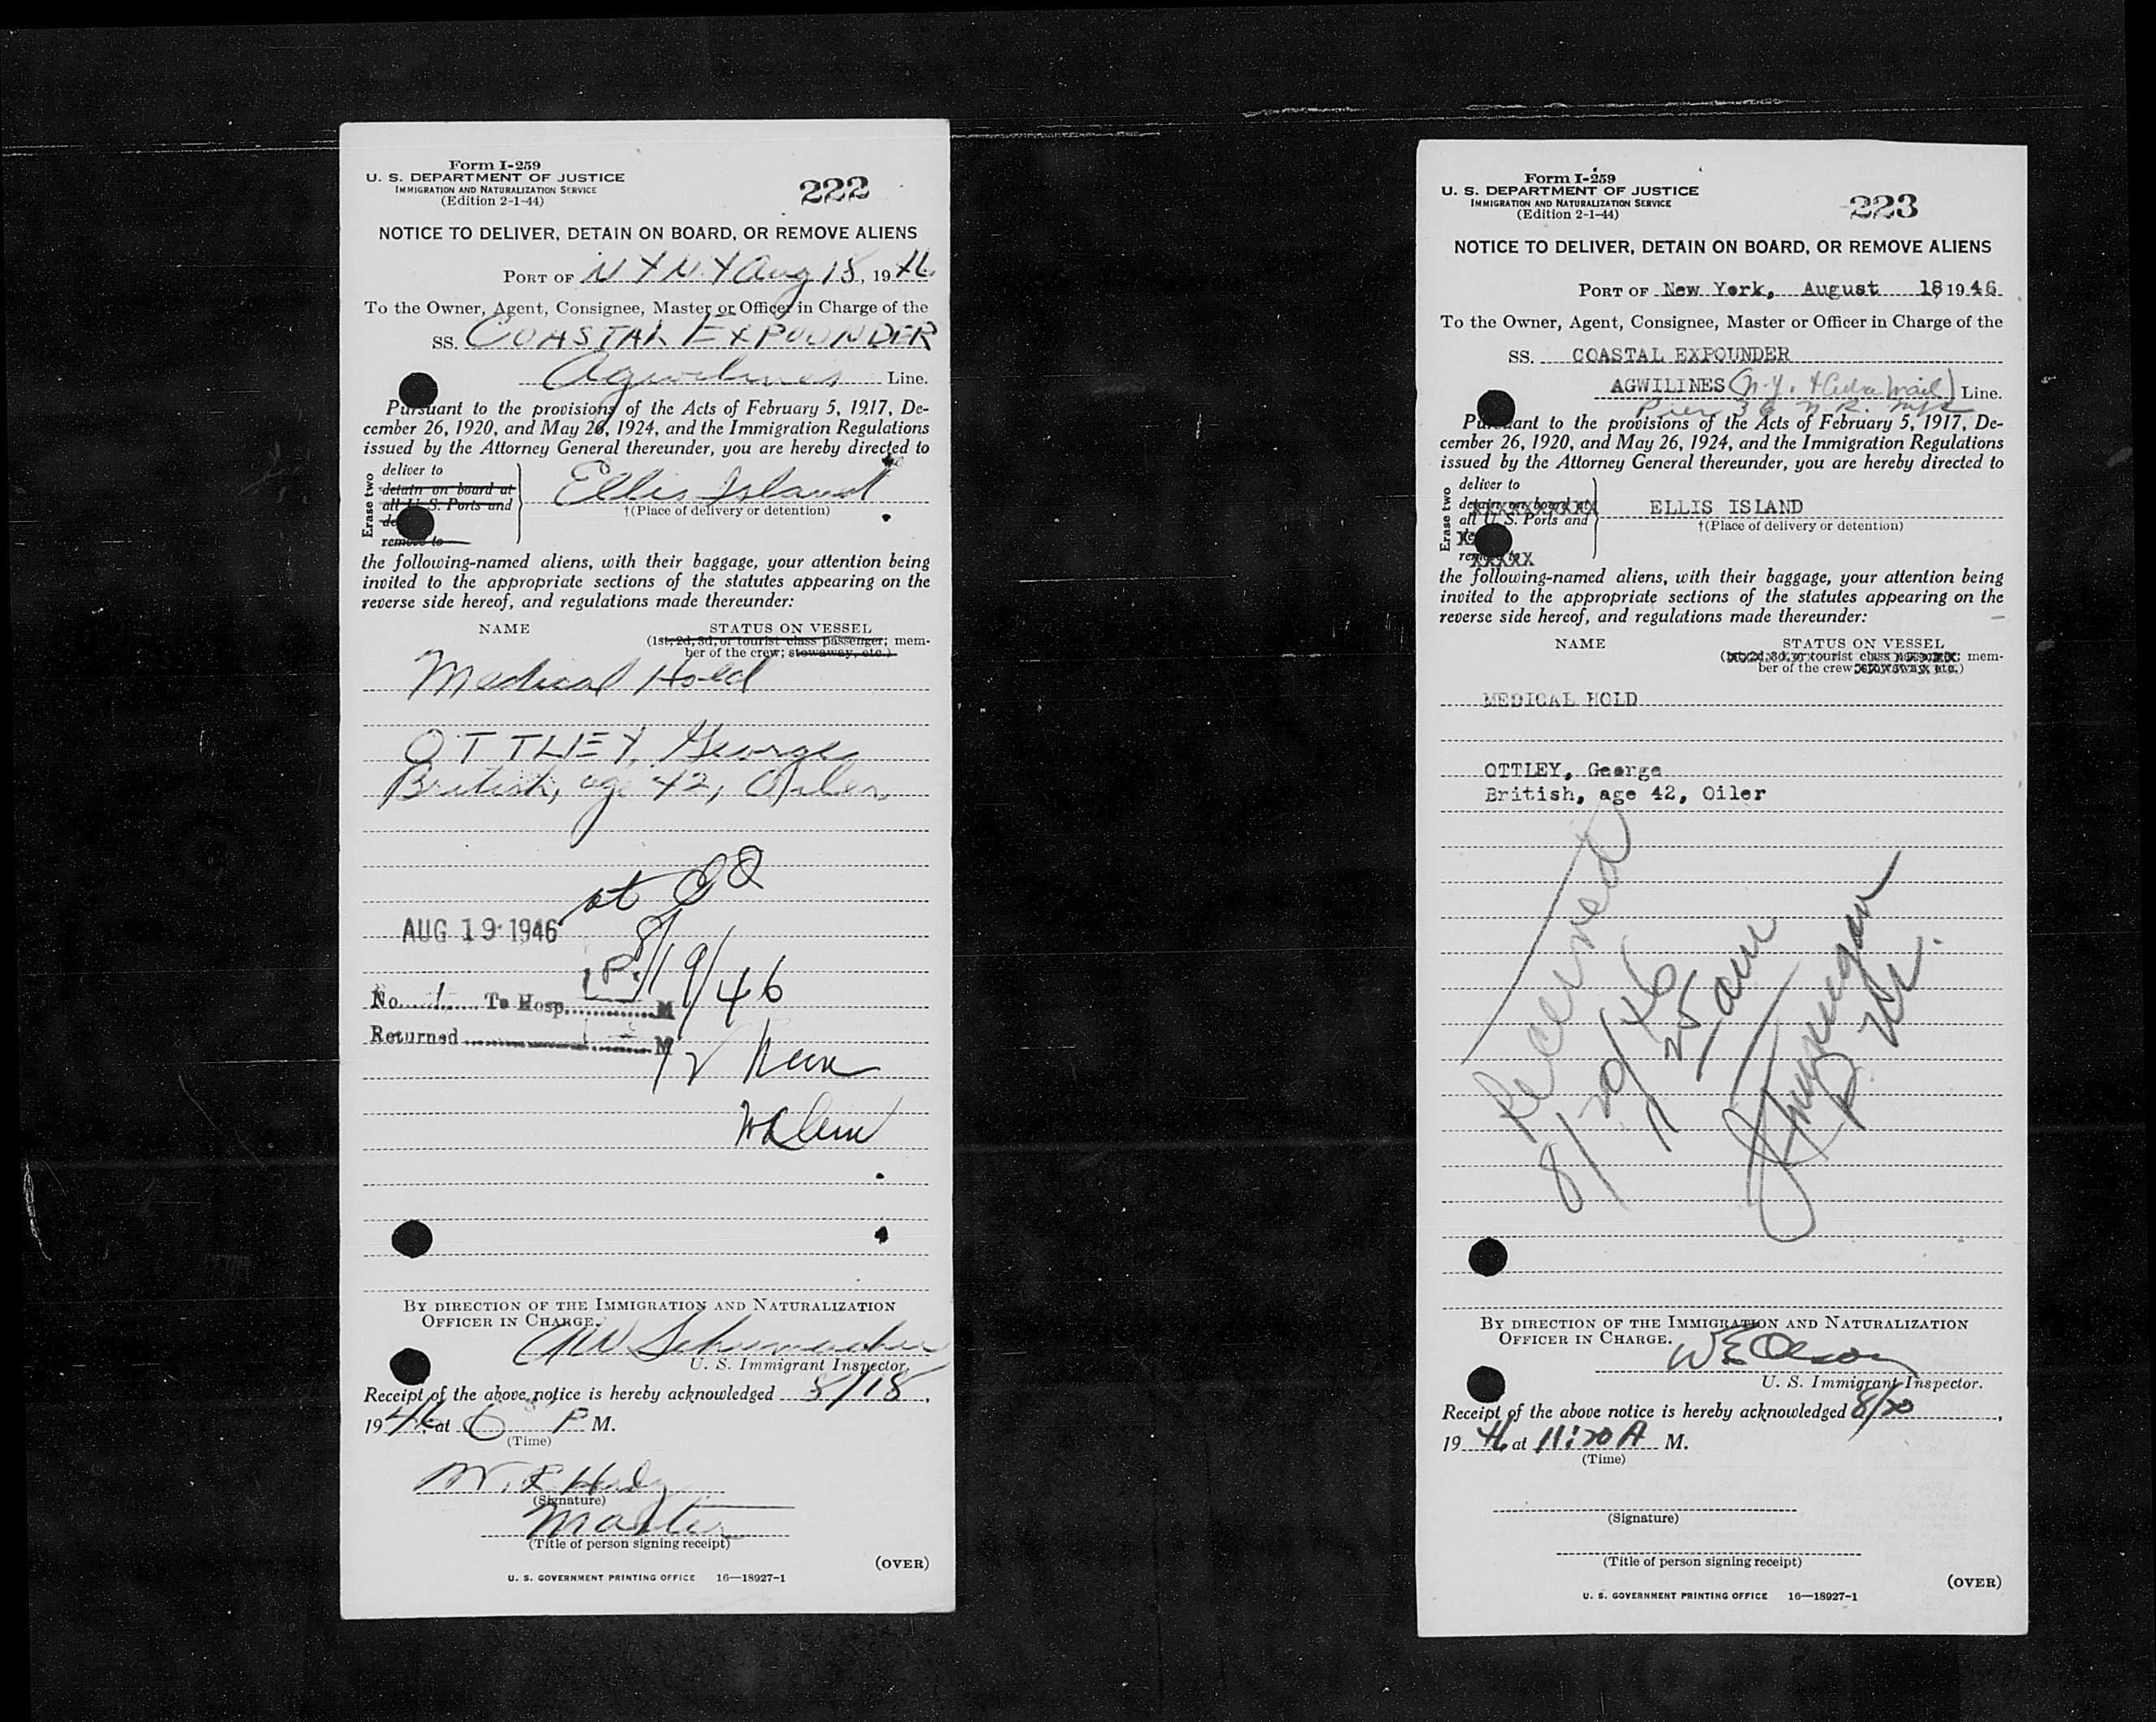 Form I-259
U. S. DEPARTMENT OF JUSTICE
IMMIGRATION AND NATURALIZATION SERVICE
(Edition 2-1-44)
222
NOTICE TO DELIVER, DETAIN ON BOARD, OR REMOVE ALIENS
PORT OF N Y N.Y Aug 18, 1946
To the Owner, Agent, Consignee, Master or Officer in Charge of the
SS. COASTAL EXPOUNDER
Agwilines Line.
Pursuant to the provisions of the Acts of February 5, 1917, De-
cember 26, 1920, and May 26, 1924, and the Immigration Regulations
issued by the Attorney General thereunder, you are hereby directed to
Erase two
deliver to
detain on board at
all U. S. Ports and
remove to
Ellis Island
†(Place of delivery or detention)
the following-named aliens, with their baggage, your attention being
invited to the appropriate sections of the statutes appearing on the
reverse side hereof, and regulations made thereunder:
NAME STATUS ON VESSEL
(1st, 2d, 3d, or tourist class passenger; mem-
ber of the crew; stowaway, etc.)
Medical Hold
OTTLEY, George
British, age 42, Oiler
at
AUG 19 1946
8/19/46
No. 1 To Hosp. P. M
Returned M
BY DIRECTION OF THE IMMIGRATION AND NATURALIZATION
OFFICER IN CHARGE.
Schumacher
U. S. Immigrant Inspector.
Receipt of the above notice is hereby acknowledged 8/18,
1946, at 6 P M.
(Time)
W. R.
(Signature)
Master
(Title of person signing receipt)
(OVER)
U. S. GOVERNMENT PRINTING OFFICE 16—18927-1
Form I-259
U. S. DEPARTMENT OF JUSTICE
IMMIGRATION AND NATURALIZATION SERVICE
(Edition 2-1-44)
223
NOTICE TO DELIVER, DETAIN ON BOARD, OR REMOVE ALIENS
PORT OF New York, August 18, 1946
To the Owner, Agent, Consignee, Master or Officer in Charge of the
SS. COASTAL EXPOUNDER
AGWILINES (N.Y. & Cuba Mail) Line.
Pier 36 N. R. NYC
Pursuant to the provisions of the Acts of February 5, 1917, De-
cember 26, 1920, and May 26, 1924, and the Immigration Regulations
issued by the Attorney General thereunder, you are hereby directed to
Erase two
deliver to
detain on board at
all U. S. Ports and
remove to
ELLIS ISLAND
†(Place of delivery or detention)
the following-named aliens, with their baggage, your attention being
invited to the appropriate sections of the statutes appearing on the
reverse side hereof, and regulations made thereunder:
NAME STATUS ON VESSEL
(1st, 2d, 3d, or tourist class passenger; mem-
ber of the crew; stowaway, etc.)
MEDICAL HOLD
OTTLEY, George
British, age 42, Oiler
Received
8/20/46
11 25 am
BY DIRECTION OF THE IMMIGRATION AND NATURALIZATION
OFFICER IN CHARGE.
W E Olson
U. S. Immigrant Inspector.
Receipt of the above notice is hereby acknowledged 8/20,
1946 at 11:20 A M.
(Time)
(Signature)
(Title of person signing receipt)
(OVER)
U. S. GOVERNMENT PRINTING OFFICE 16—18927-1